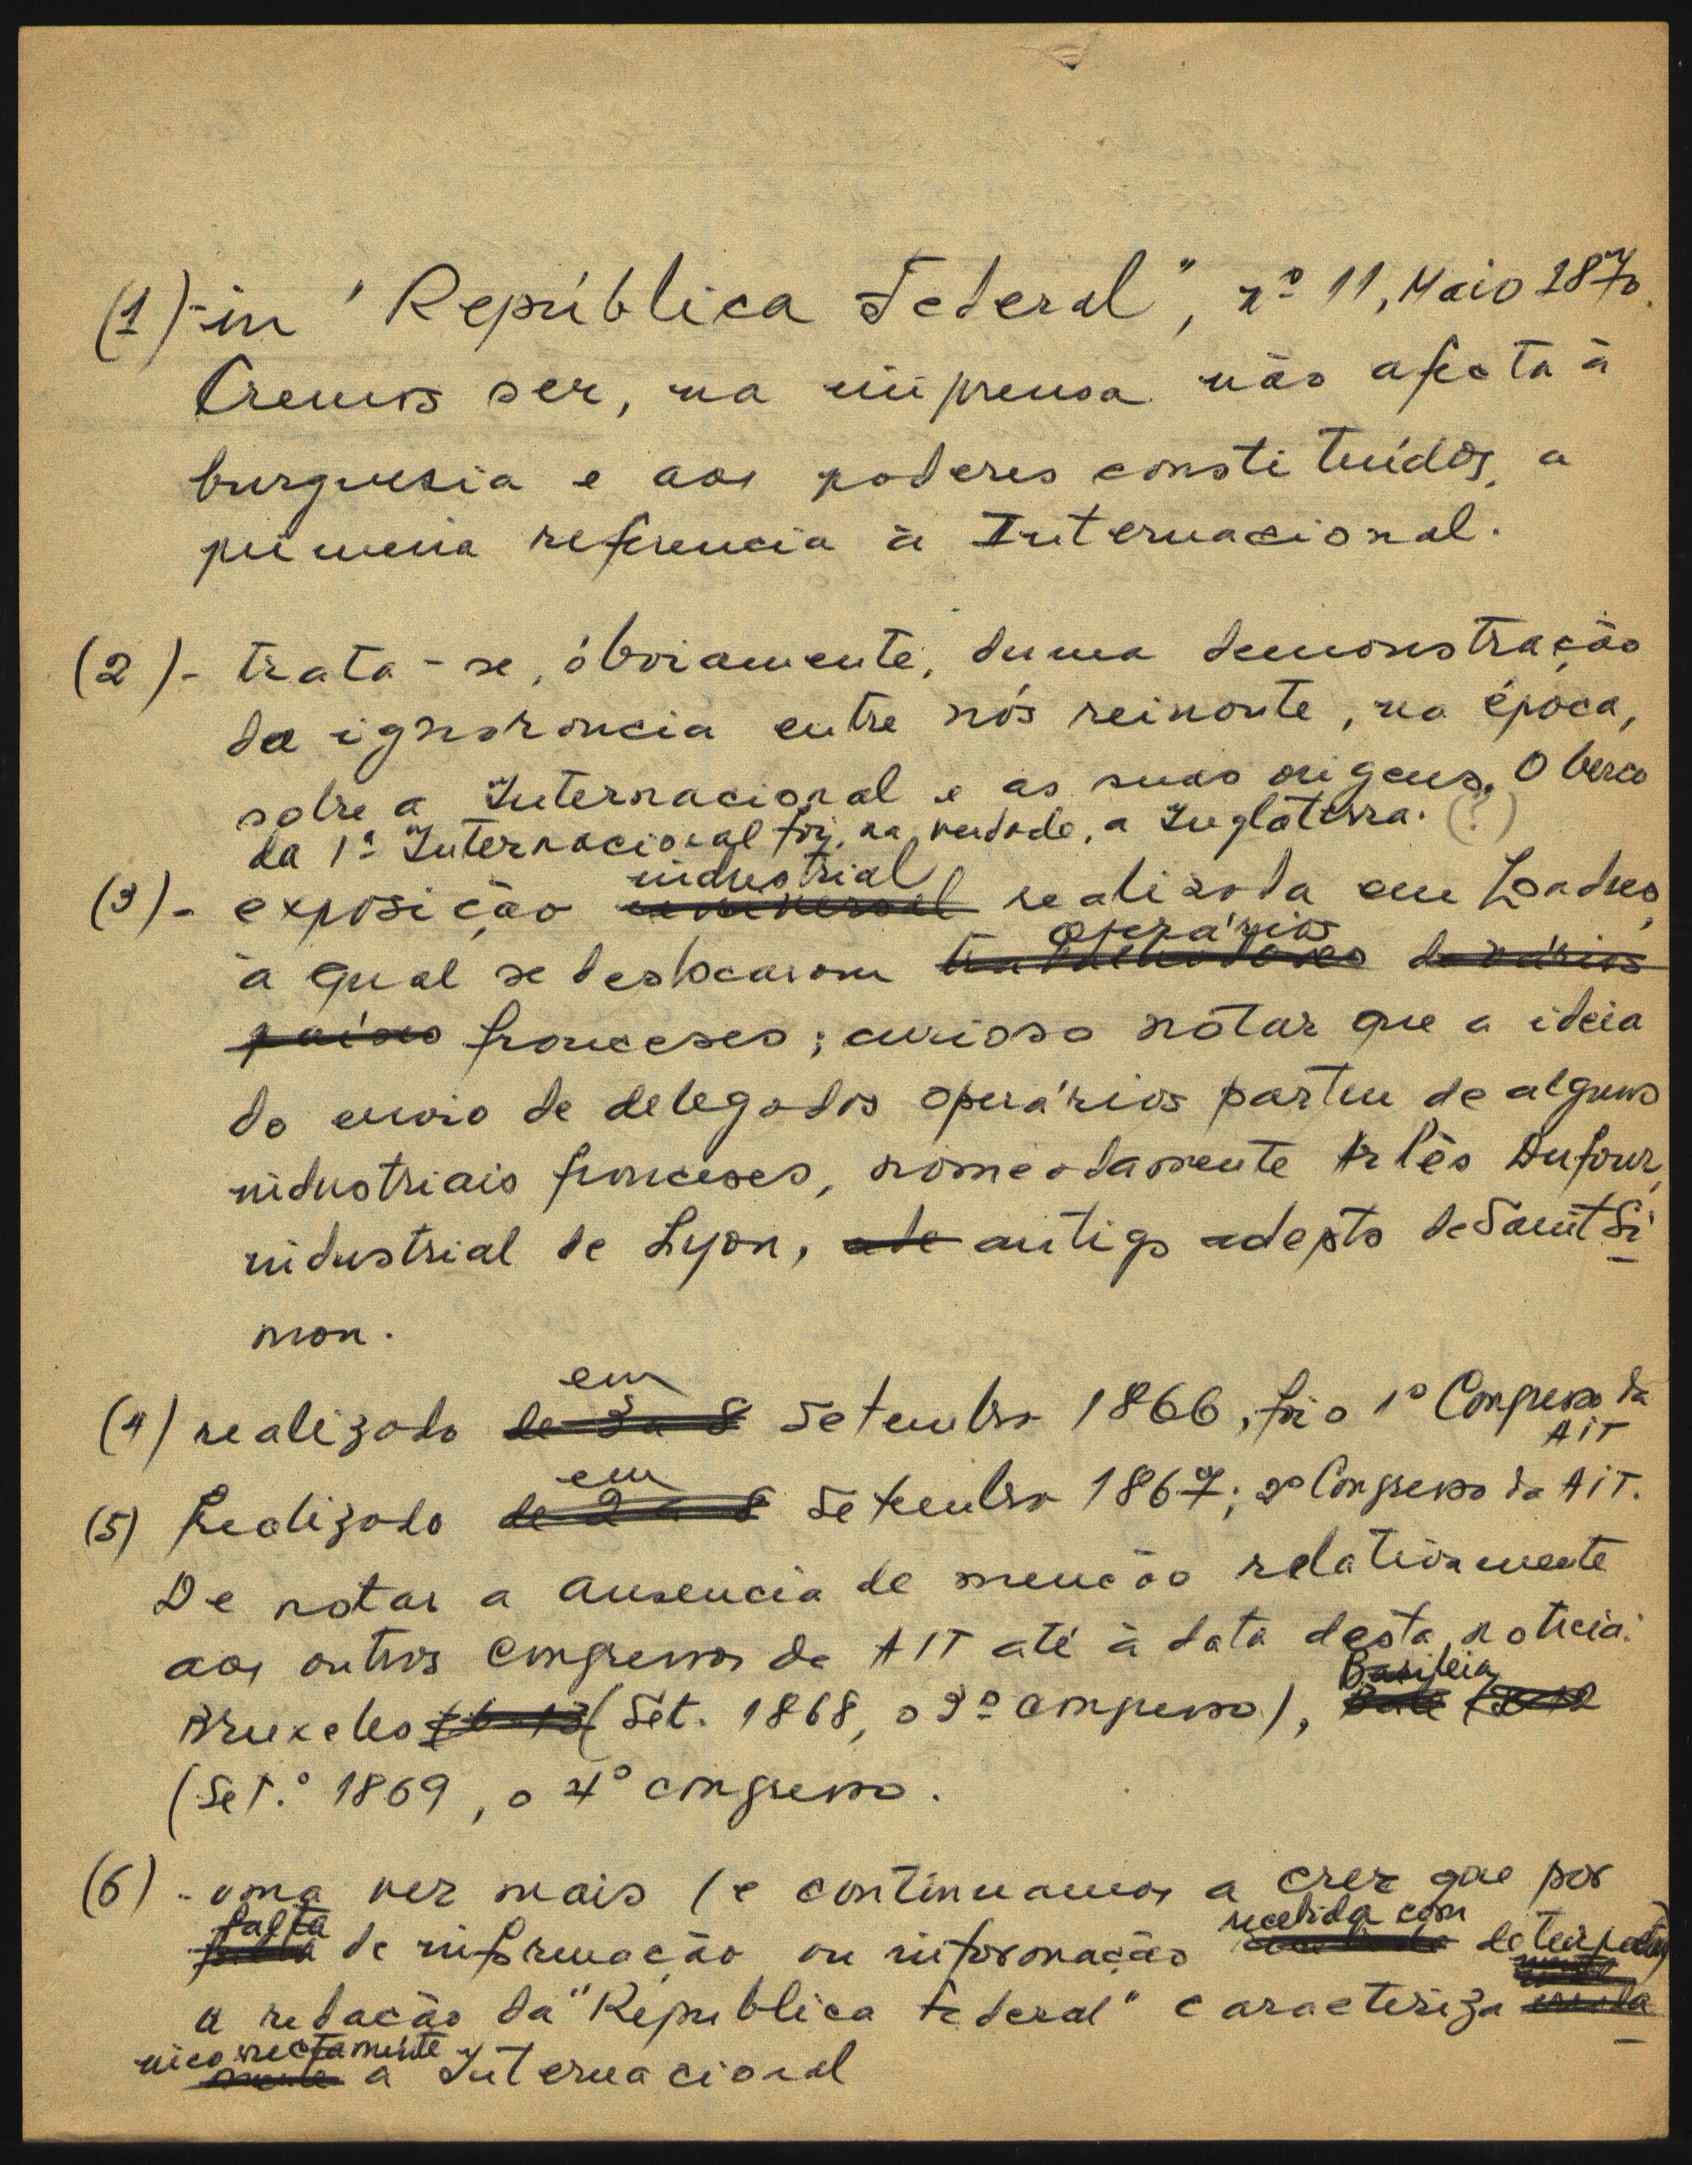 (1)-in "República Federal", nº 11, Maio 1870.
Cremos ser, na imprensa não afecta à
burguesia e aos poderes constituídos, a
primeira referencia à Internacional.
(2)- trata-se, óbviamente, duma demonstração
da ignorancia entre nós reinante, na época,
sobre a Internacional e as suas origens. O berço
da 1ª Internacional foi, na verdade, a Inglaterra. (?)
industrial
(3)- exposição universal realizada em Londres,
operários
à qual se deslocaram trabalhadores de vários
países franceses; curioso notar que a ideia
do envio de delegados operários partiu de alguns
industriais franceses, nomeadamente Arlès Dufour,
industrial de Lyon, ade antigo adepto de Saint Si-
mon.
em
(4) realizado de 3 a 8 Setembro 1866, foi o 1º Congresso da
AIT
em
(5) Realizado de 2 a 8 Setembro 1867; 2º Congresso da AIT.
De notar a ausencia de menção relativamente
aos outros congressos da AIT até à data desta noticia:
Basileia
Bruxelas (6-13 (Set. 1868, o 3º congresso), Bale
(Set.º 1869, o 4º congresso.
(6)- uma vez mais (e continuamos a crer que por
falta recebida com
falta de informação ou informação deturpações)
a redação da "República Federal" caracteriza
incorrectamente
mente a Internacional